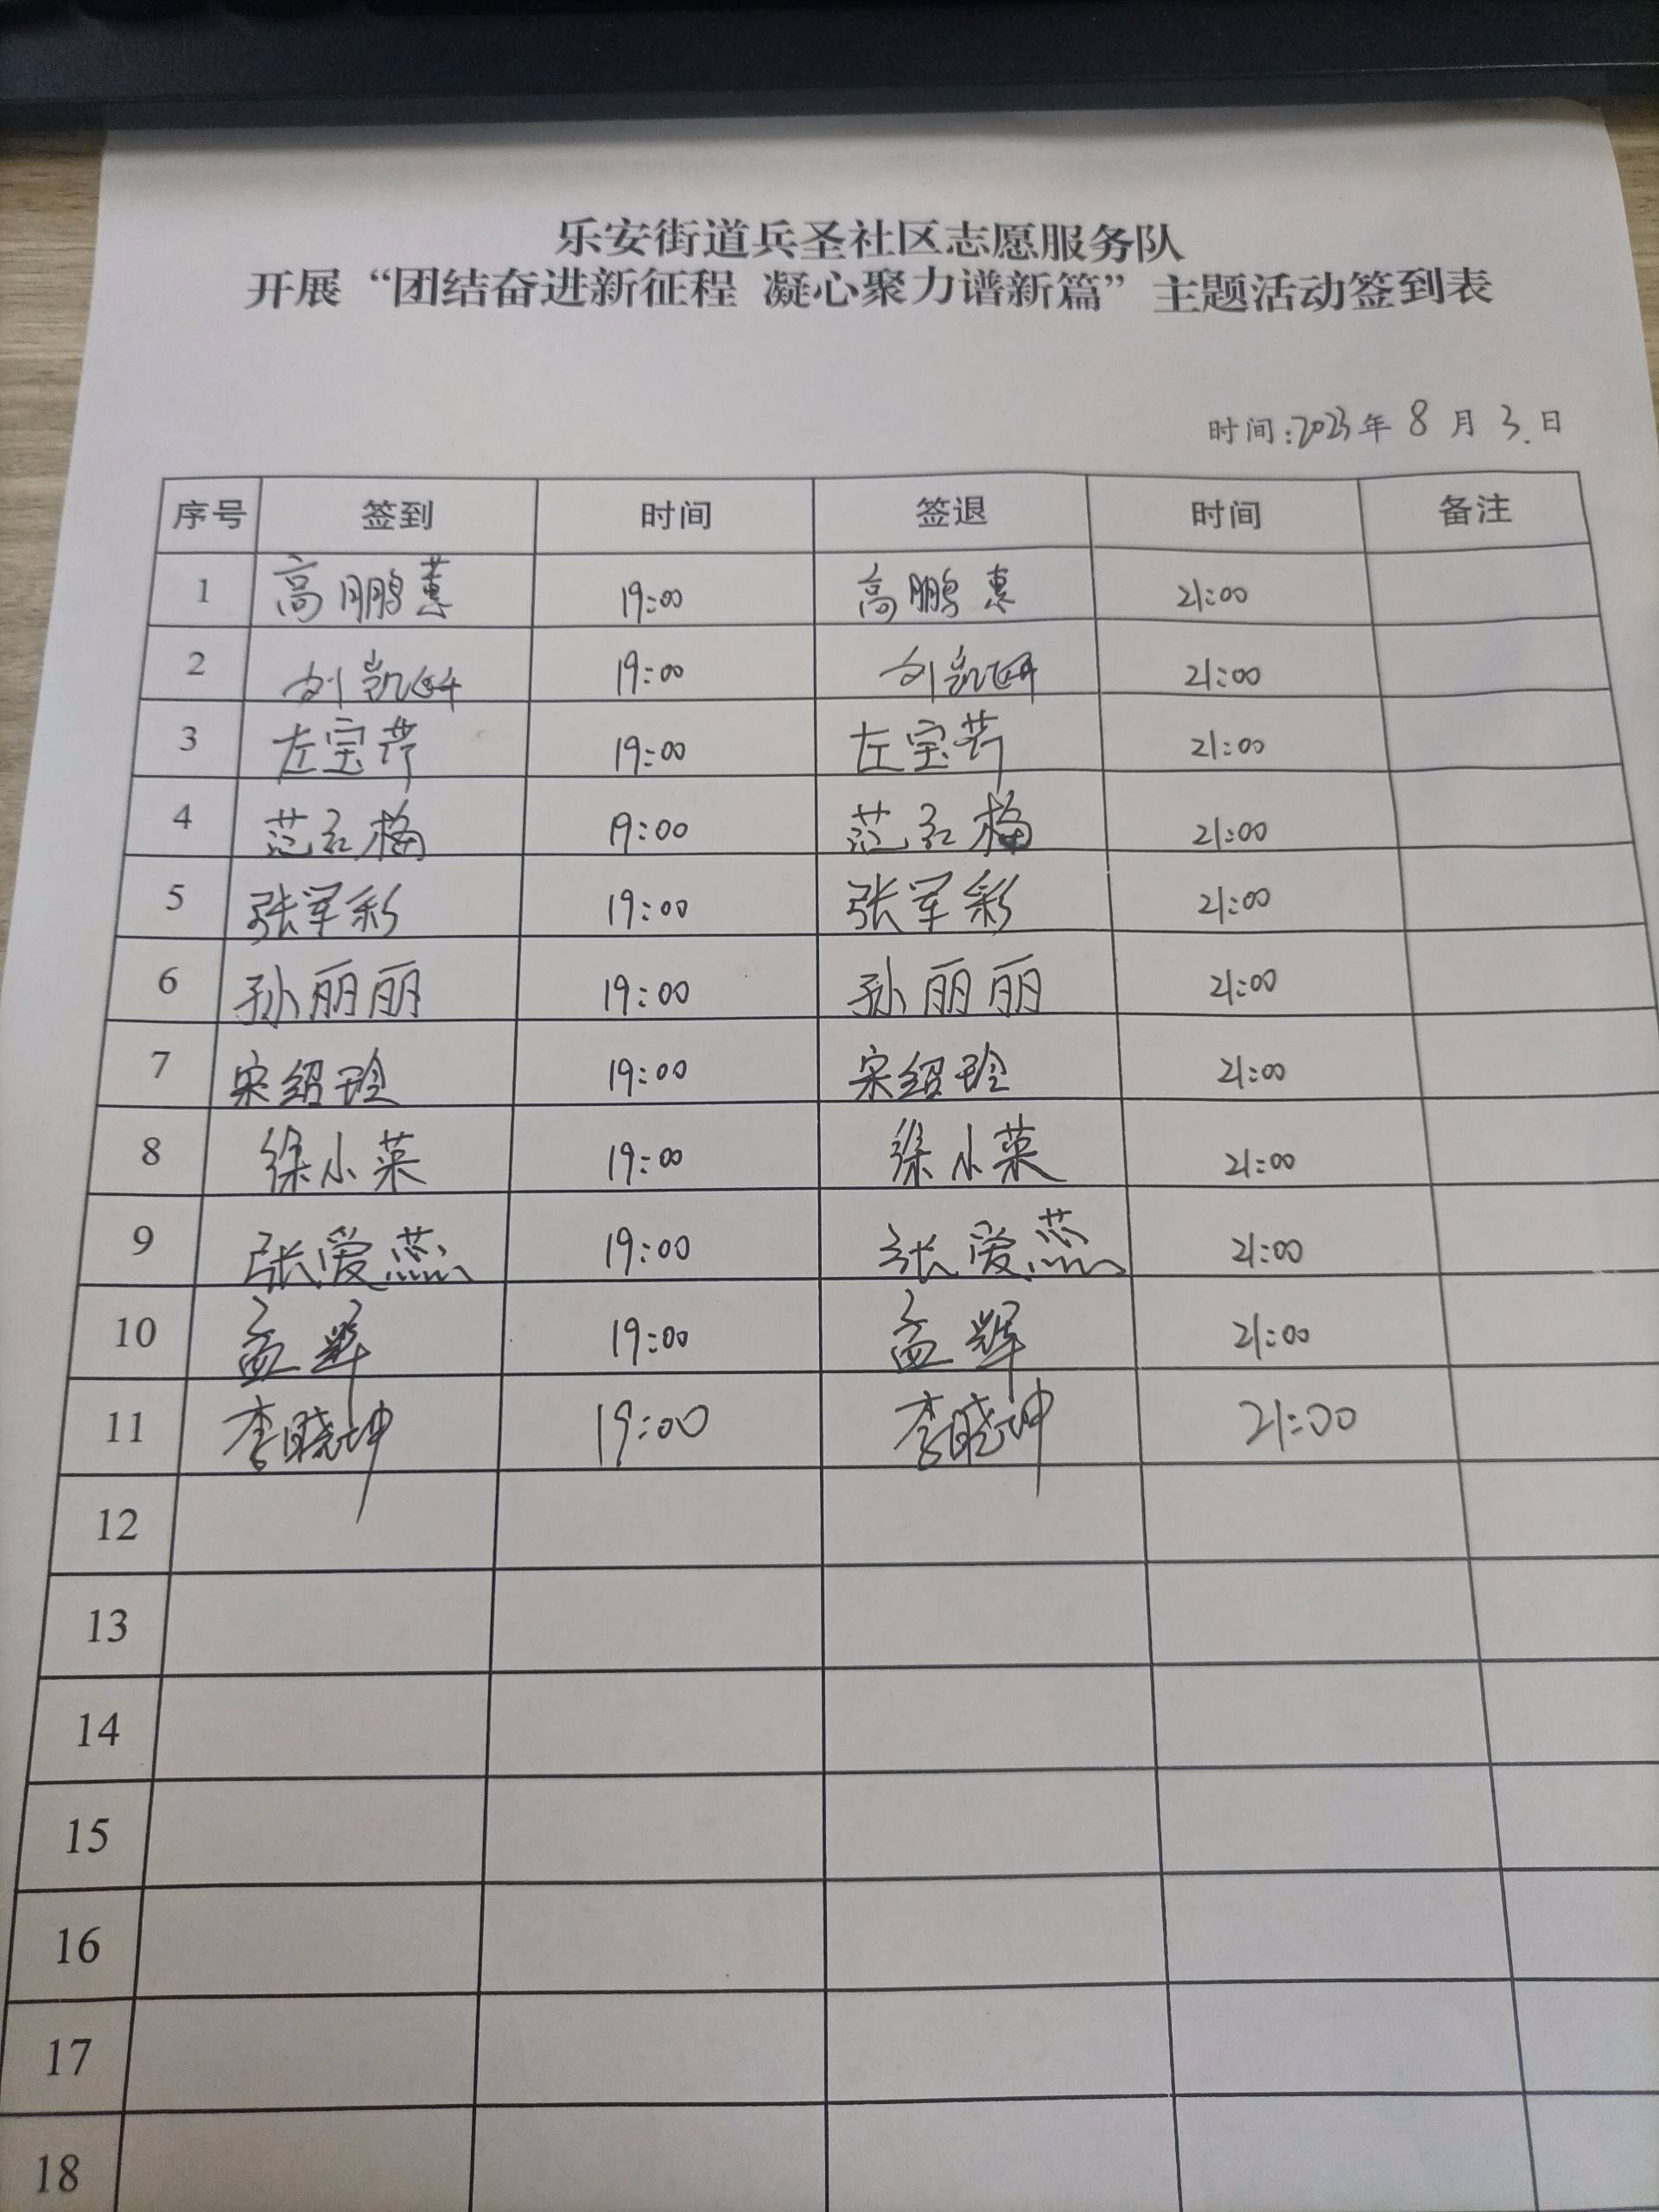 乐安街道兵圣社区志愿服务队
开展“团结奋进新征程 凝心聚力谱新篇”主题活动签到表
时间:2023年 8 月 3.日
序号 签到 时间 签退 时间 备注
1 高鹏蕙 19:00 高鹏惠 21:00
2 刘凯妍 19:00 刘凯妍 21:00
3 左宝芹 19:00 左宝芹 21:00
4 范红梅 19:00 范红梅 21:00
5 张军彩 19:00 张军彩 21:00
6 孙丽丽 19:00 孙丽丽 21:00
7 宋绍玲 19:00 宋绍玲 21:00
8 徐小菜 19:00 徐小菜 21:00
9 张爱蕊 19:00 张爱蕊 21:00
10 孟辉 19:00 孟辉 21:00
11 李晓坤 19:00 李晓坤 21:00
12
13
14
15
16
17
18